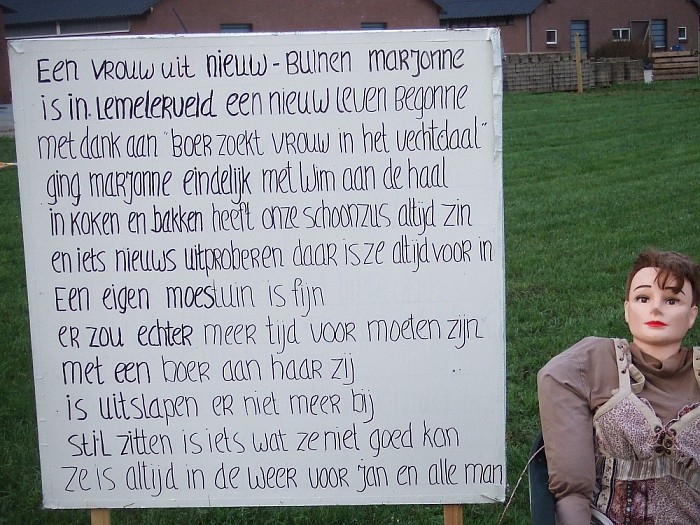 Een vrouw uit nieuw-Buinen marjonne
is in Lemelerveld een nieuw leven Begonne
met dank aan "Boer zoekt vrouw in het vechtdaal"
ging marjonne eindelijk met Wim aan de haal
in koken en bakken heeft onze schoonzus altijd zin
en iets nieuws uitproberen daar is ze altijd voor in
Een eigen moestuin is fijn
er zou echter meer tijd voor moeten zijn
met een boer aan haar zij
is uitslapen er niet meer bij
stil zitten is iets wat ze niet goed kan
Ze is altijd in de weer voor jan en alle man